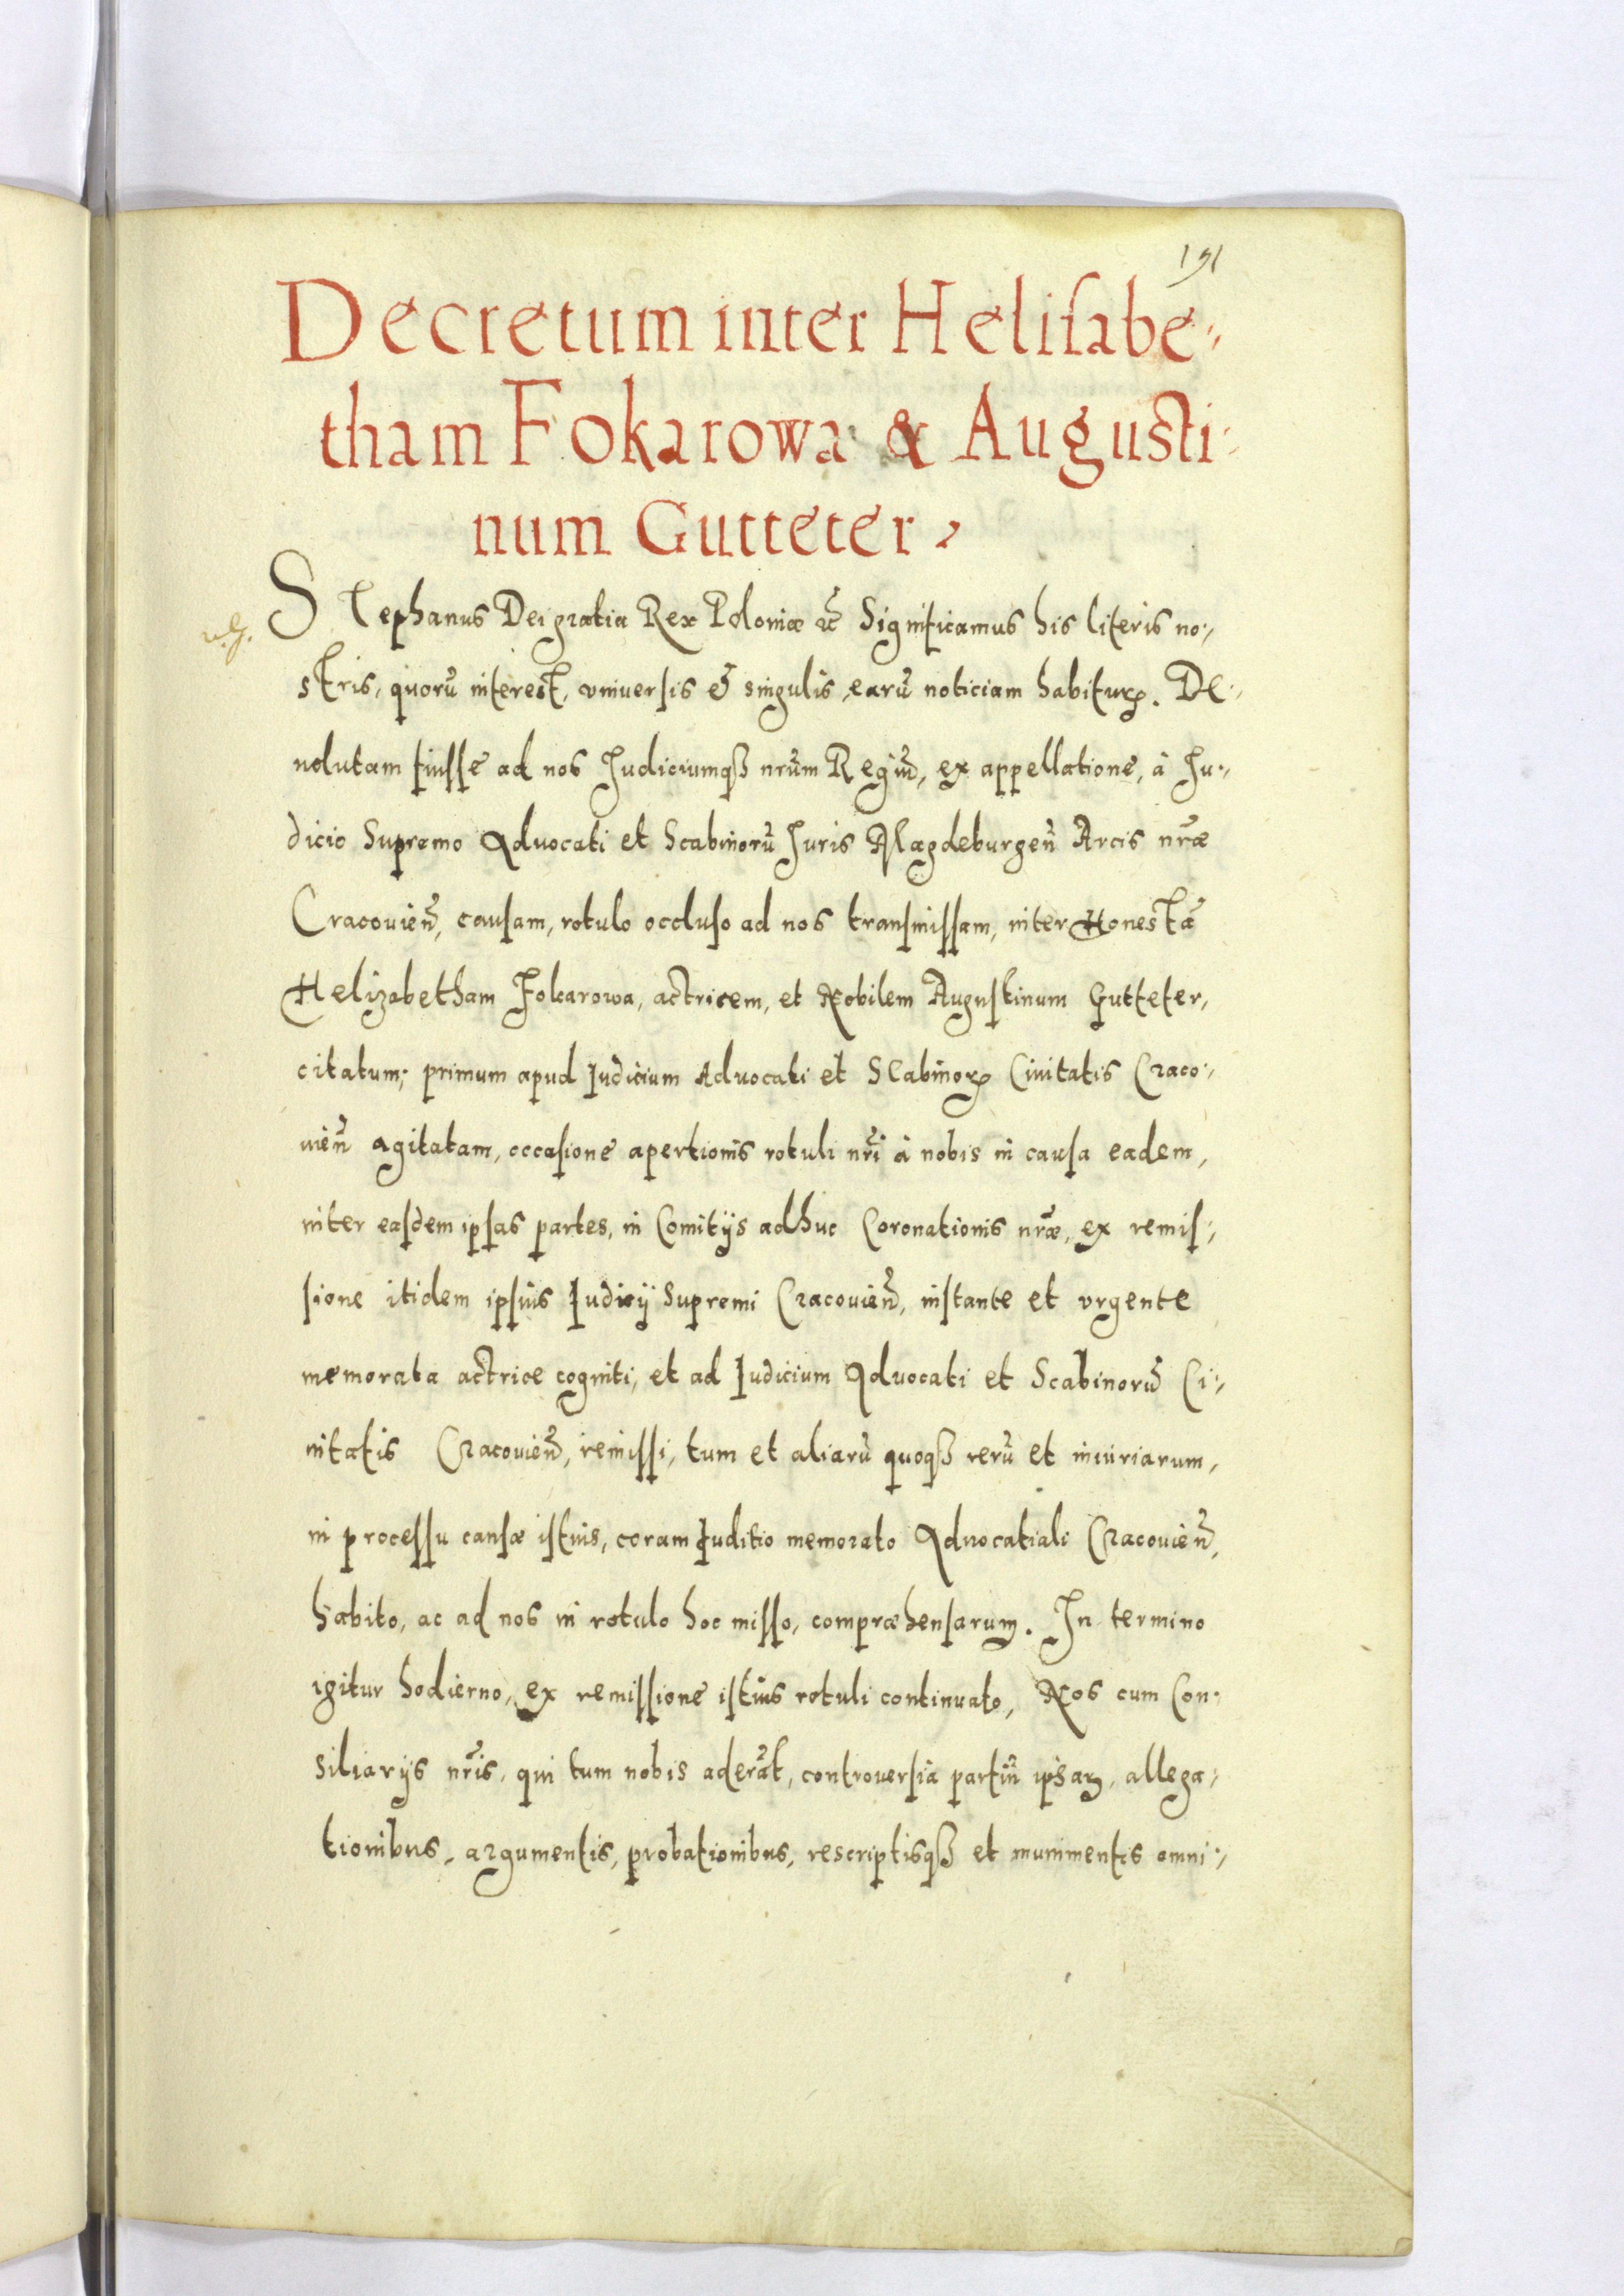 191
Decretum inter Helisabe-
tham Fokarowa & Augusti-
num Gutteter.
Stephanus Dei gratia Rex Poloniæ &c̃ Significamus his literis no-
stris, quorũ interest, vniuersis et singulis, earũ noticiam habiturꝝ. De-
uolutam fuisse ad nos Judiciumqꝫ nr̃um Regiũ, ex appellatione, à Ju-
dicio Supremo Aduocati et Scabinorũ Juris Magdeburgeñ Arcis nr̃æ
Cracouieñ, causam, rotulo occluso ad nos transmissam, inter Honestã
Helizabetham Fokarowa, actricem, et Nobilem Augustinum Gutteter,
citatum; primum apud Iudicium Aduocati et Scabinorꝝ Ciuitatis Craco-
uieñ agitatam, occasione apertionis rotuli nr̃i à nobis in causa eadem,
inter easdem ipsas partes, in Comitijs adhuc Coronationis nr̃æ, ex remis-
sione itidem ipsius Iudicij Supremi Cracouieñ, instante et vrgente
memorata actrice cogniti, et ad Iudicium Aduocati et Scabinorũ Ci-
uitatis Cracouieñ, remissi, tum et aliarũ quoqꝫ rerũ et iniuriarum,
in processu causæ istius, coram Iuditio memorato Aduocatiali Cracouieñ,
habito, ac ad nos in rotulo hoc misso, compræhensarum. In termino
igitur hodierno, ex remissione istius rotuli continuato, Nos cum Con-
siliarijs nr̃is, qui tum nobis aderãt, controuersia partiũ ipsaꝝ, allega-
tionibus, argumentis, probationibus, rescriptisqꝫ et munimentis omni-